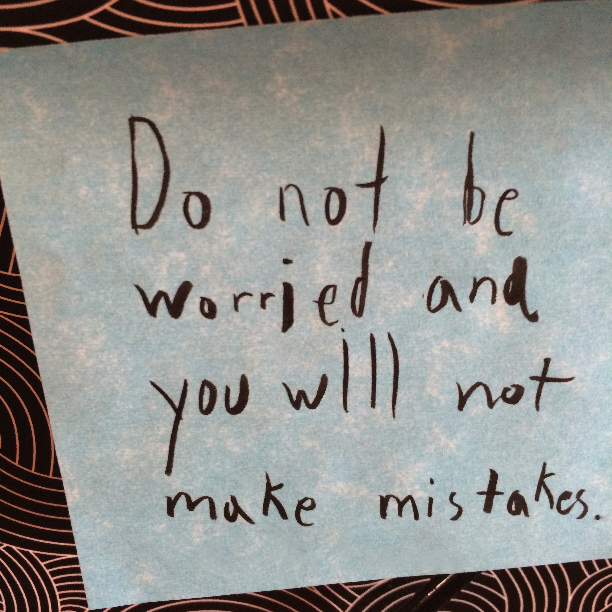 Do not be
worried and
you will not
make mistakes.